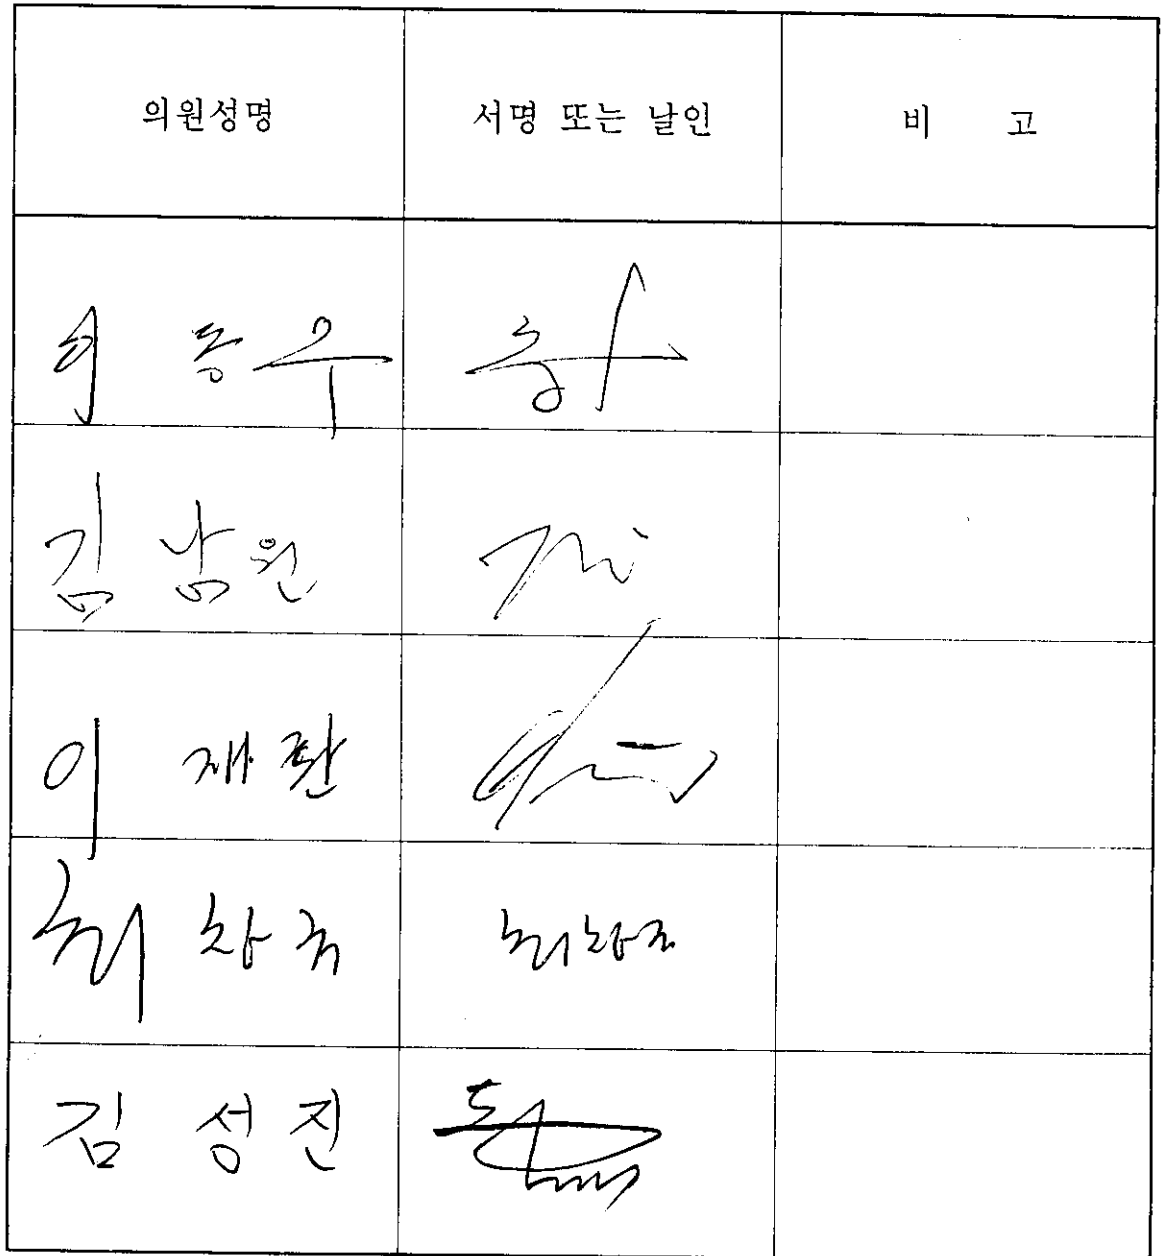 의원성명 서명 또는 날인 비 고
이 동우
김 남원
이 재환
최 창국 최창국
김 성진